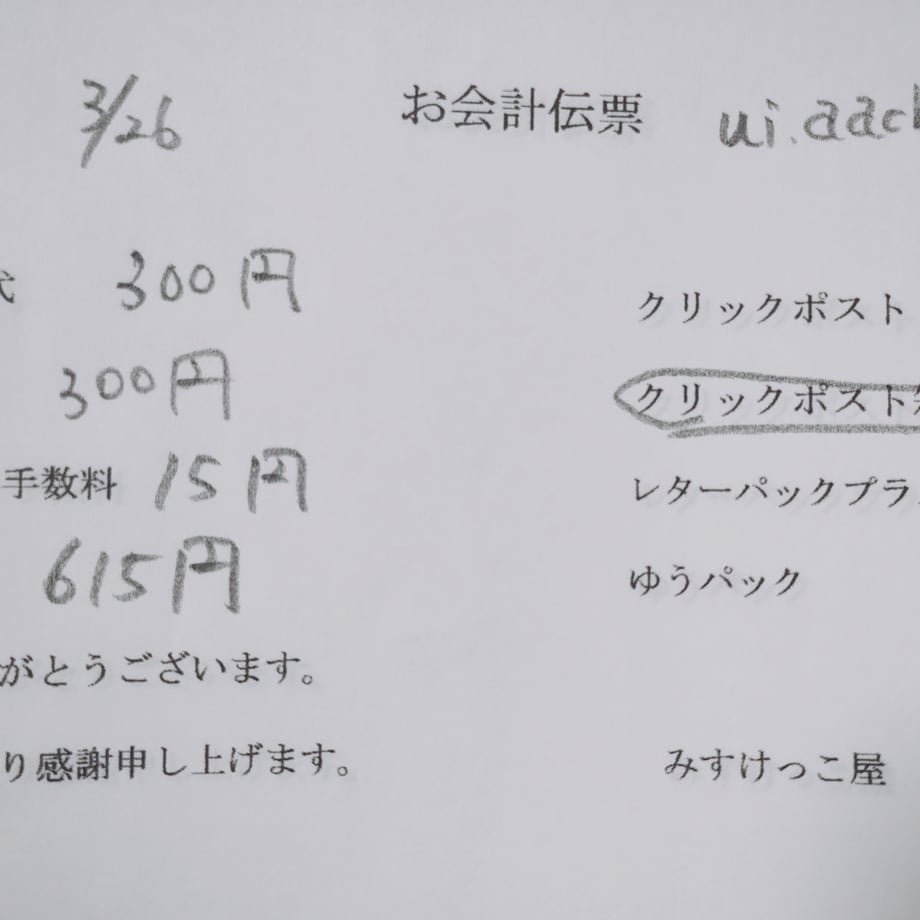 3/26 お会計伝票 ui.aac
代 300円 クリックポスト
300円 クリックポスト
手数料 15円 レターパックプラ
615円 ゆうパック
がとうございます。
り感謝申し上げます。 みすけっこ屋